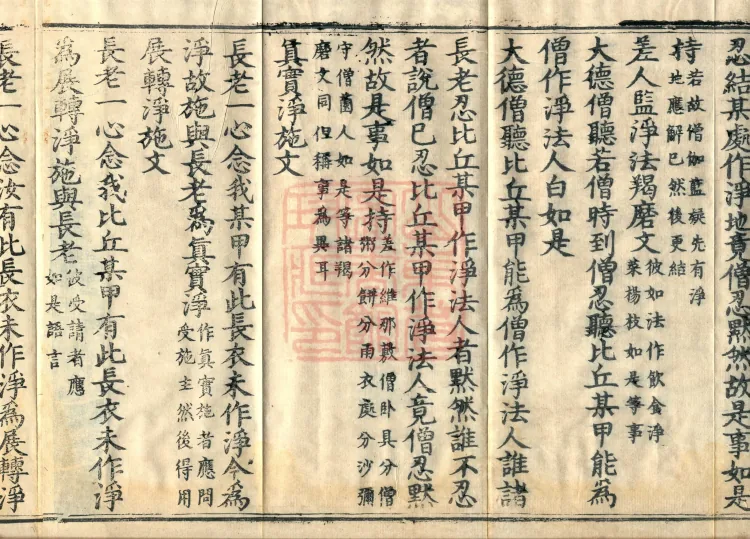 忍結某處作淨地竟僧忍默然故是事如是
持若故僧伽藍疑先有淨地應解已然後更結
差人監淨法羯磨文彼如法作飲食淨菜楊枝如是等事
大德僧聽若僧時到僧忍聽比丘某甲能為
僧作淨法人白如是
大德僧聽比丘某甲能為僧作淨法人誰諸
長老忍比丘某甲作淨法人者默然誰不忍
者說僧已忍比丘某甲作淨法人竟僧忍默
然故是事如是持差作維那敷僧臥具分僧粥分餅分雨衣處分沙彌
守僧園人如是等諸羯磨文同但稱事為異耳
真實淨施文
長老一心念我某甲有此長衣未作淨今為
淨故施與長老為真實淨作真實施者應問受施主然後得用
展轉淨施文
長老一心念我比丘某甲有此長衣未作淨
為展轉淨施與長老彼受請者應如是語言
長老一心念汝有此長衣未作淨為展轉淨